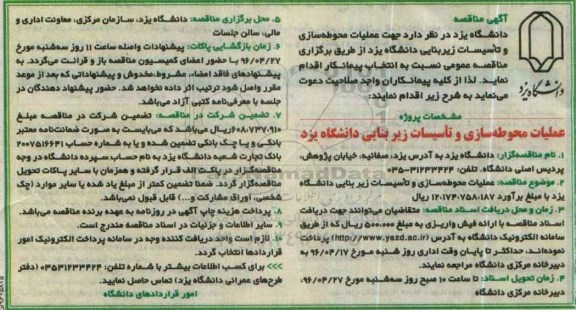 آگهی مناقصه
دانشگاه یزد در نظر دارد جهت عملیات محوطه‌سازی
و تأسیسات زیربنایی دانشگاه یزد از طریق برگزاری
مناقصه عمومی نسبت به انتخاب پیمانکار اقدام
نماید. لذا از کلیه پیمانکاران واجد صلاحیت دعوت
می‌نماید به شرح زیر اقدام نمایند:
دانشگاه یزد
مشخصات پروژه
عملیات محوطه‌سازی و تأسیسات زیر بنایی دانشگاه یزد
۱. نام مناقصه‌گزار: دانشگاه یزد به آدرس یزد، صفائیه، خیابان پژوهش،
پردیس اصلی دانشگاه. تلفن: ۳۱۲۳۳۴۲۴-۰۳۵
۲. موضوع مناقصه: عملیات محوطه‌سازی و تأسیسات زیر بنایی دانشگاه
یزد با مبلغ برآورد ۱۲،۱۷۴،۷۵۸،۱۸۷ ریال
۳. زمان و محل دریافت اسناد مناقصه: متقاضیان می‌توانند جهت دریافت
اسناد مناقصه با ارائه فیش واریزی به مبلغ ۵۰۰،۰۰۰ ریال که از طریق
سامانه الکترونیک دانشگاه به آدرس (http://www.yazd.ac.ir) پرداخت
نموده‌اند، حداکثر تا پایان وقت اداری روز شنبه مورخ ۹۶/۰۴/۱۷ به
دبیرخانه مرکزی دانشگاه مراجعه نمایند.
۴. زمان تحویل اسناد: تا ساعت ۱۰ صبح روز سه‌شنبه مورخ ۹۶/۰۴/۲۷،
دبیرخانه مرکزی دانشگاه
۵. محل برگزاری مناقصه: دانشگاه یزد، سازمان مرکزی، معاونت اداری و
مالی، سالن جلسات
۶. زمان بازگشایی پاکات: پیشنهادات واصله ساعت ۱۱ روز سه‌شنبه مورخ
۹۶/۰۴/۲۷ با حضور اعضای کمیسیون مناقصه باز و قرائت می‌گردد. به
پیشنهادهای فاقد امضاء، مشروط، مخدوش و پیشنهاداتی که بعد از موعد
مقرر واصل شود ترتیب اثر داده نخواهد شد. حضور پیشنهاد دهندگان در
جلسه با معرفی‌نامه کتبی آزاد می‌باشد.
۷. تضمین شرکت در مناقصه: تضمین شرکت در مناقصه مبلغ
۶۰۸،۷۳۷،۹۱۰ ریال می‌باشد که می‌بایست به صورت ضمانت‌نامه معتبر
بانکی و یا چک بانکی تضمین شده و یا به شماره حساب ۲۰۰۷۵۱۶۶۴۱
بانک تجارت شعبه دانشگاه یزد به نام حساب سپرده دانشگاه در وجه
مناقصه‌گزار در پاکت الف قرار گرفته و همزمان با سایر پاکات تحویل
مناقصه‌گزار گردد. ضمناً تضمین کمتر از مبلغ یاد شده یا سایر موارد (چک
شخصی، اوراق مشارکت و...) قابل قبول نمی‌باشد.
۸. پرداخت هزینه چاپ آگهی در روزنامه به عهده برنده مناقصه می‌باشد.
۹. سایر اطلاعات و جزئیات در اسناد مناقصه مندرج است.
۱۰. لازم است واحد دریافت کننده وجه در سامانه پرداخت الکترونیک امور
قراردادها انتخاب گردد.
>>> برای کسب اطلاعات بیشتر با شماره تلفن: ۰۳۵۳۱۲۳۳۴۲۴ (دفتر
طرح‌های عمرانی دانشگاه یزد) تماس حاصل نمایید.
امور قراردادهای دانشگاه